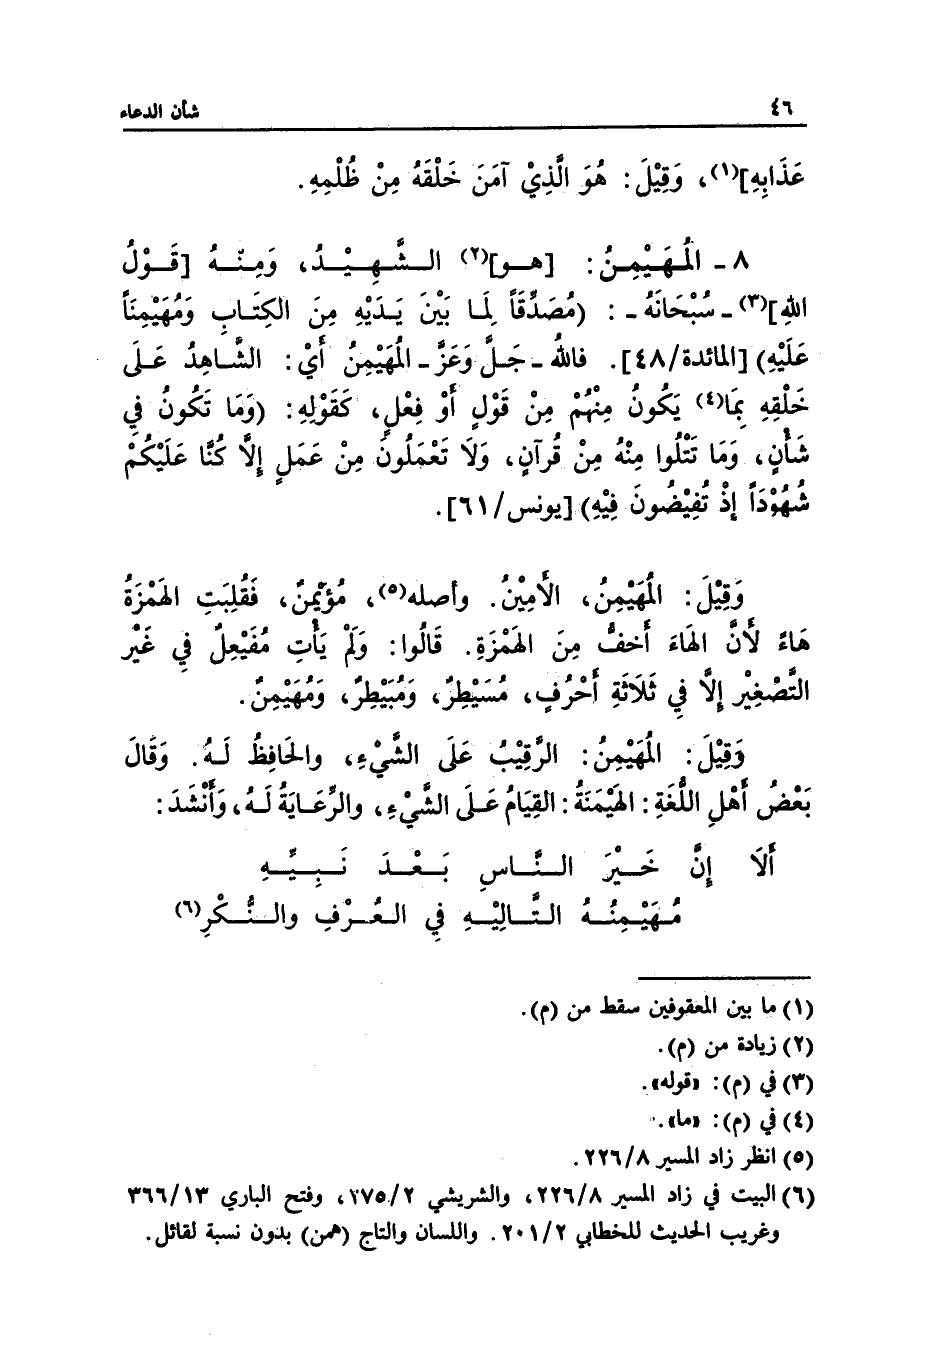 ٤٦ شأن الدعاء
عَذَابِهِ](١)، وَقِيْلَ: هُوَ الَّذِيْ آمَنَ خَلْقَهُ مِنْ ظُلْمِهِ.
٨ - المُهَيْمِنُ: [هو](٢) الشَّهِيْدُ، وَمِنْهُ [قَوْلُ
اللهِ](٣) - سُبْحَانَهُ - : (مُصَدِّقَاً لِمَا بَيْنَ يَدَيْهِ مِنَ الكِتَابِ وَمُهَيْمِنَاً
عَلَيْهِ) [المائدة/٤٨]. فاللهُ - جَلَّ وَعَزَّ - المُهَيْمِنُ أَيْ: الشَّاهِدُ عَلَى
خَلْقِهِ بِمَا(٤) يَكُونُ مِنْهُمْ مِنْ قَوْلٍ أَوْ فِعْلٍ، كَقَوْلِهِ: (وَمَا تَكُونُ فِي
شَأْنٍ، وَمَا تَتْلُوا مِنْهُ مِنْ قُرآنٍ، وَلَا تَعْمَلُونَ مِنْ عَمَلٍ إِلَّا كُنَّا عَلَيْكُمْ
شُهُوْدَاً إِذْ تُفِيْضُونَ فِيْهِ) [يونس/٦١].
وَقِيْلَ: المُهَيْمِنُ، الأَمِيْنُ. وأصله(٥)، مُؤَيْمِنٌ، فَقُلِبَتِ الهَمْزَةُ
هَاءً لأَنَّ الهَاءَ أَخَفُّ مِنَ الهَمْزَةِ. قَالُوا: وَلَمْ يَأْتِ مُفَيْعِلٌ فِي غَيْرِ
التَّصْغِيْرِ إِلَّا فِي ثَلَاثَةِ أَحْرُفٍ، مُسَيْطِرٌ، وَمُبَيْطِرٌ، وَمُهَيْمِنٌ.
وَقِيْلَ: المُهَيْمِنُ: الرَّقِيْبُ عَلَى الشَّيْءِ، والحَافِظُ لَهُ. وَقَالَ
بَعْضُ أَهْلِ اللُّغَةِ: الهَيْمَنَةُ: القِيَامُ عَلَى الشَّيْءِ، والرِّعَايَةُ لَهُ، وَأَنْشَدَ:
أَلَا إِنَّ خَيْرَ النَّاسِ بَعْدَ نَبِيِّهِ
مُهَيْمِنُهُ التَّالِيْهِ فِي العُرْفِ والنُّكْرِ(٦)
(١) ما بين المعقوفين سقط من (م).
(٢) زيادة من (م).
(٣) في (م): «قوله».
(٤) في (م): «ما».
(٥) انظر زاد المسير ٢٢٦/٨.
(٦) البيت في زاد المسير ٢٢٦/٨، والشريشي ٢/٧٧٥، وفتح الباري ٣٦٦/١٣
وغريب الحديث للخطابي ٢٠١/٢. واللسان والتاج (همن) بدون نسبة لقائل.